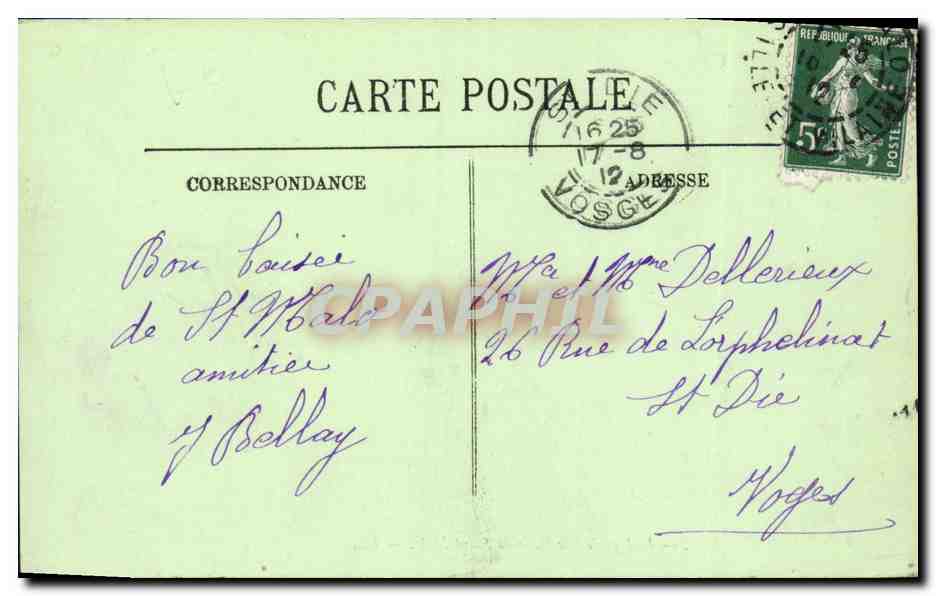 CARTE POSTALE
CORRESPONDANCE
Bon baisée
de St Malo
amitiée
J Bellay
ADRESSE
Mr et Mme Dellerieux
26 Rue de L'orphelinat
St Die
Voges
ST DIE
16 25
17-8
12
VOSGES
REPUBLIQUE FRANÇAISE
5c
POSTES
CPAPHIL